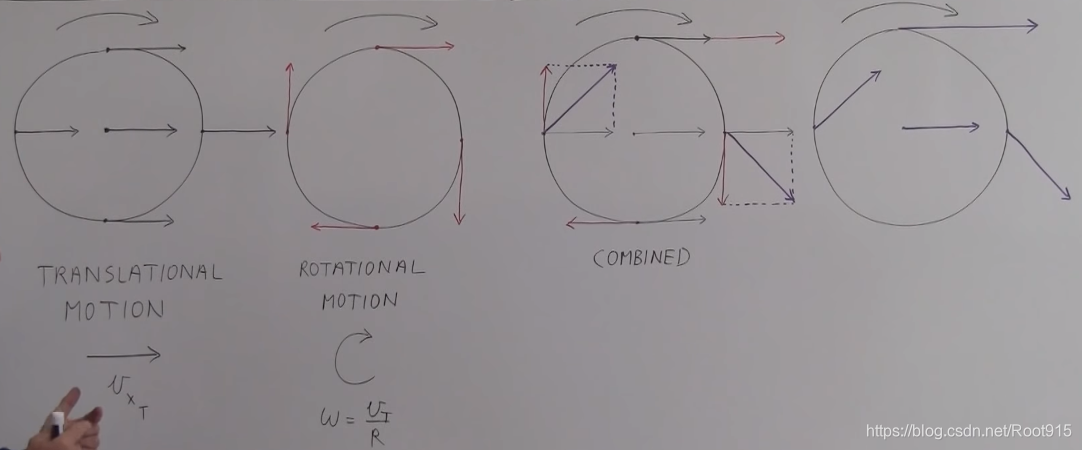 TRANSLATIONAL
MOTION
v_{x_T}
ROTATIONAL
MOTION
ω = v_T / R
COMBINED
https://blog.csdn.net/Root915